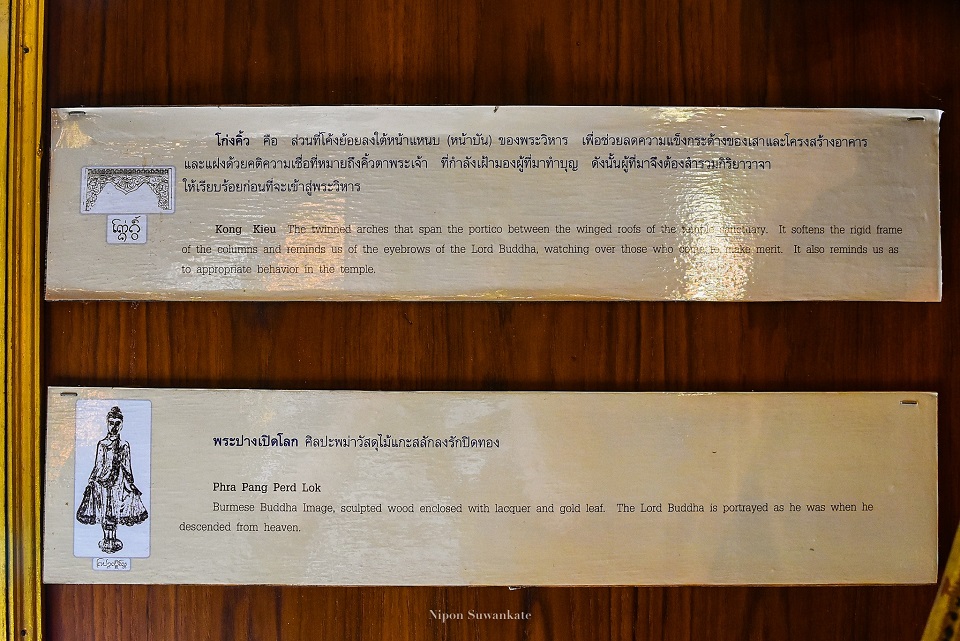 โก่งคิ้ว คือ ส่วนที่โค้งย้อยลงใต้หน้าแหนบ (หน้าบัน) ของพระวิหาร เพื่อช่วยลดความแข็งกระด้างของเสาและโครงสร้างอาคาร
และแฝงด้วยคติความเชื่อที่หมายถึงคิ้วตาพระเจ้า ที่กำลังเฝ้ามองผู้ที่มาทำบุญ ดังนั้นผู้ที่มาจึงต้องสำรวมกิริยาวาจา
ให้เรียบร้อยก่อนที่จะเข้าสู่พระวิหาร
Kong Kieu The twinned arches that span the portico between the winged roofs of the temple sanctuary. It softens the rigid frame
of the columns and reminds us of the eyebrows of the Lord Buddha, watching over those who come to make merit. It also reminds us as
to appropriate behavior in the temple.
พระปางเปิดโลก ศิลปะพม่าวัสดุไม้แกะสลักลงรักปิดทอง
Phra Pang Perd Lok
Burmese Buddha Image, sculpted wood enclosed with lacquer and gold leaf. The Lord Buddha is portrayed as he was when he
descended from heaven.
Nipon Suwankate